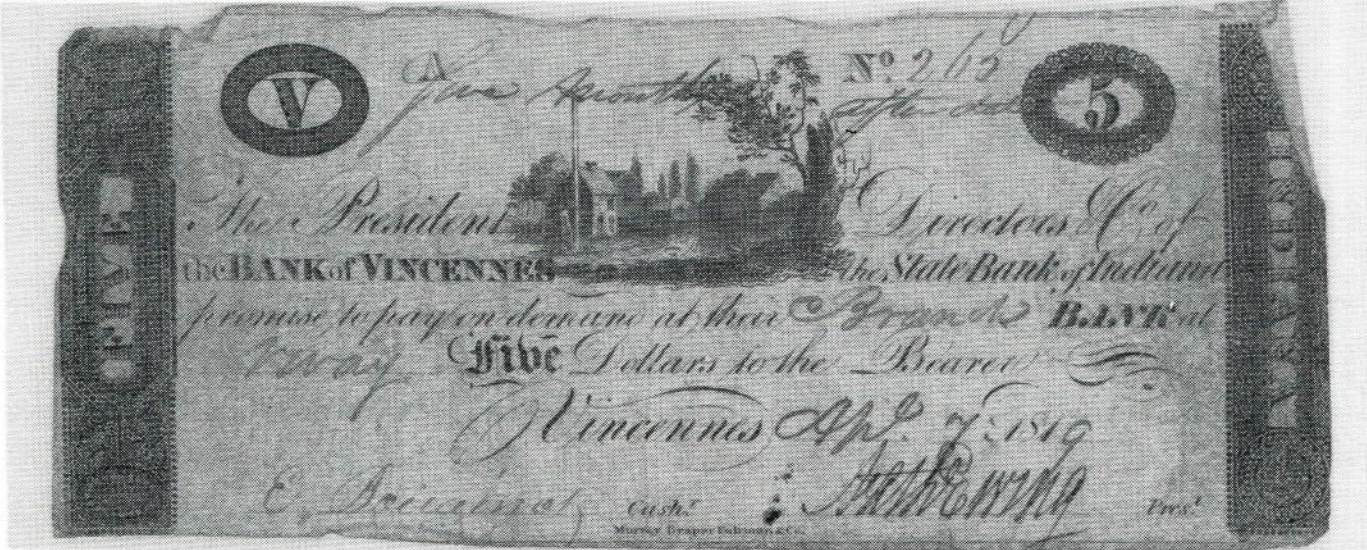 FIVE
V
A
Five Months
after date
No. 265
5
The President
Directors & Co. of
the BANK of VINCENNES
the State Bank of Indiana
promise to pay on demand at their Branch BANK at
Vevay Five Dollars to the Bearer
Vincennes Apl. 7. 1819
Cashr.
Nath Ewing
Prest.
Murray Draper Fairman & Co.
INDIANA